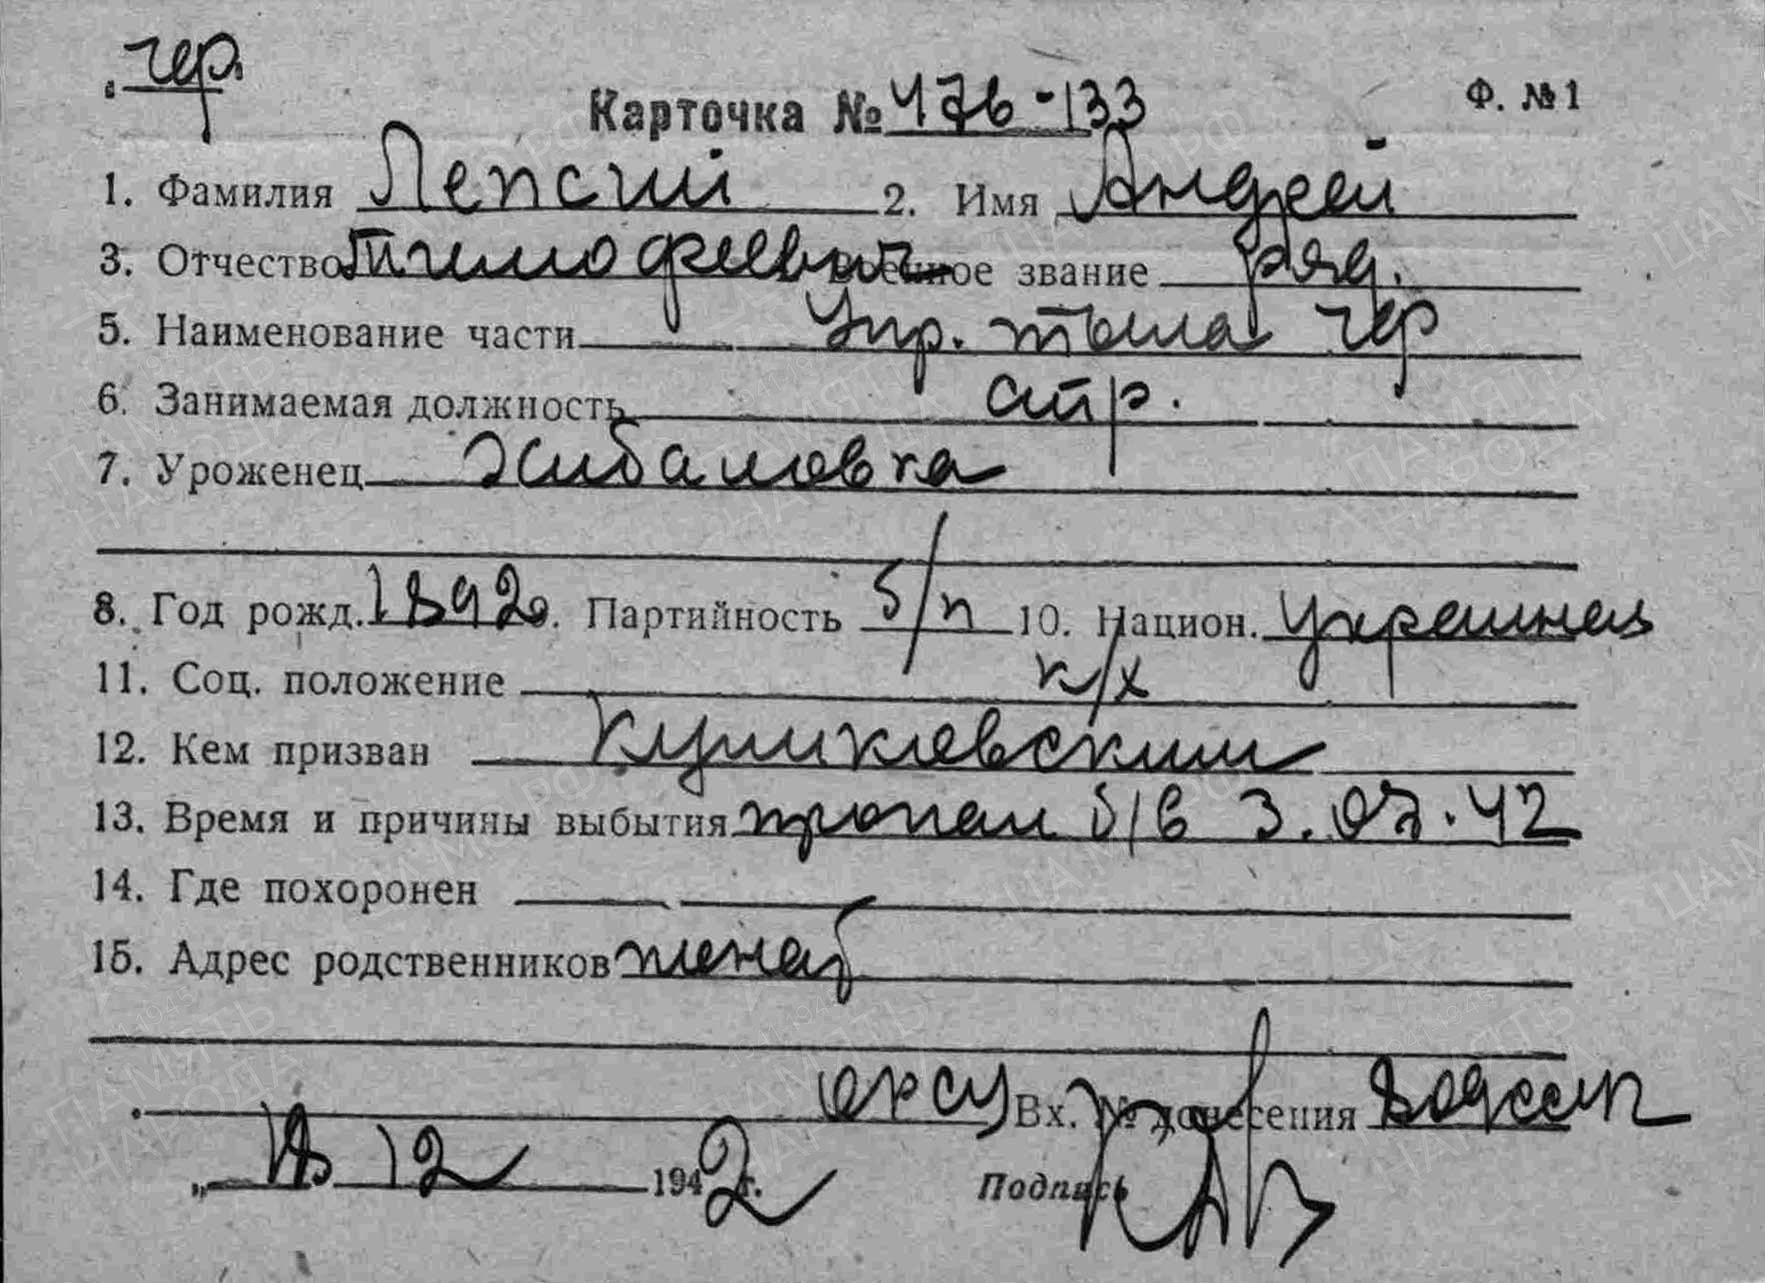 чер.
Карточка № 476-133 Ф. №1
1. Фамилия Лепский 2. Имя Андрей
3. Отчество Тимофеевич военное звание ряд.
5. Наименование части Упр. тыла чер
6. Занимаемая должность стр.
7. Уроженец Жибаловка
8. Год рожд. 1892 . Партийность б/п 10. Национ. Украинец
11. Соц. положение к/х
12. Кем призван
13. Время и причины выбытия пропал б/в 3.07.42
14. Где похоронен
15. Адрес родственников женат
Вх. № донесения
12 1942 г. Подпись